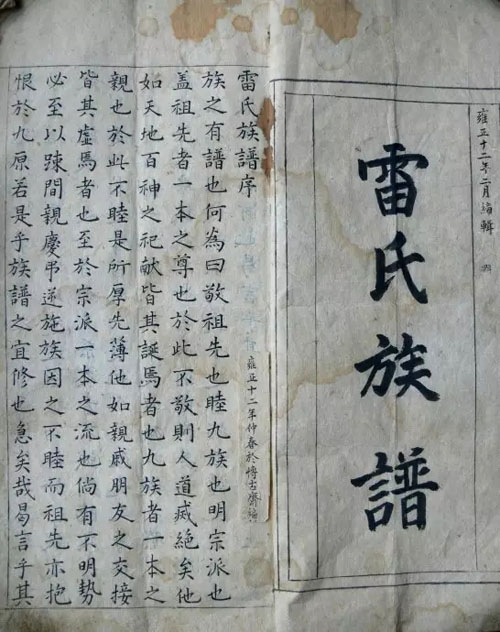 雍正十二年二月编辑
雷氏族譜
雷氏族譜序
雍正十二年仲春於博古齋编
族之有譜也何為曰敬祖先也睦九族也明宗派也
盖祖先者一本之尊也於此不敬則人道烕絕矣他
如天地百神之祀献皆其誕焉者也九族者一本之
親也於此不睦是所厚先薄他如親戚朋友之交接
皆其虛焉者也至於宗派一本之流也倘有不明勢
必至以踈間親慶弔逆施族因之不睦而祖先亦抱
恨於九原若是乎族譜之宜修也急矣哉曷言乎其